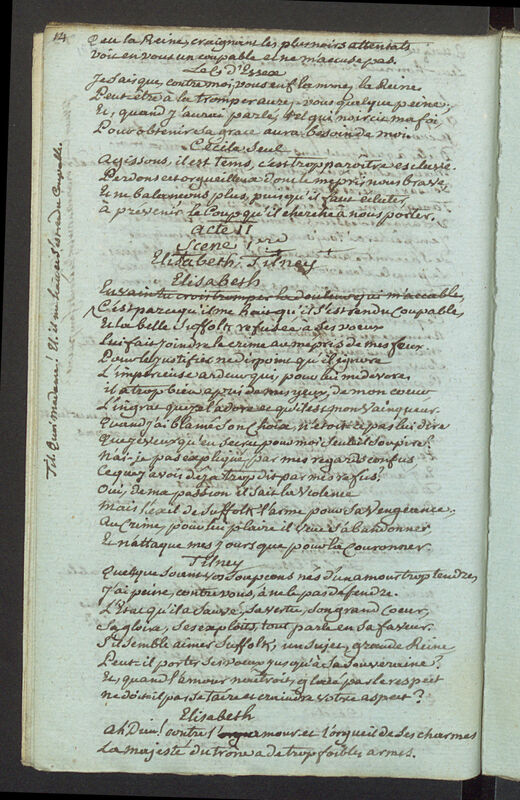 14
Que la Reine, craignant les plus noirs attentats
Voit en vous un coupable et ne m'accuse pas.
Le Cte d'Essex
Je sais que, contre moi, vous enflammez la Reine
Peut-être à la tromper aurez-vous quelque peine;
Et, quand j'aurai parlé, tel qui noircit ma foi
Pour obtenir sa grace aura besoin de moi.
Cécile seul
Agissons, il est tems, c'est trop paroître esclave.
Perdons cet orgueilleux dont le mépris nous brave
Et ne balançons plus, puisqu'il faut éclater,
à prévenir le coup qu'il cherche à nous porter.
Acte II
Scene 1ere
Elisabeth, Tilney
Elisabeth
En vain tu crois tromper la douleur qui m'accable,
C'est parce qu'il me hait qu'il s'est rendu coupable
Et la belle Suffolk refusée à ses voeux
Lui fait joindre le crime au mépris de mes feux
Pour le justifier ne dis point qu'il ignore
L'impérieuse ardeur qui, pour lui me dévore,
il a trop bien appris de mes yeux, de mon coeur
L'ingrat que je l'adore et qu'il est mon vainqueur.
Quand j'ai blamé son choix, n'étoit-ce pas lui dire
Que je veux qu'en secret pour moi seule il soupire?
N'ai-je pas expliqué par mes regards confus
Ce que j'avois déja trop dit par mes refus.
Oui, de ma passion il sait la violence
Mais l'exil de Suffolk l'arme pour sa vengeance;
Au crime, pour lui plaire il veut s'abandonner
Et n'attaque mes jours que pour la couronner.
Tilney
Quelque soient vos soupçons nés d'un amour trop tendre,
J'ai peine, contre vous, à ne le pas defendre.
L'Etat qu'il a sauvé, sa vertu, son grand coeur,
Sa gloire, ses exploits, tout parle en sa faveur.
Il semble aimer Suffolk; un sujet, grande Reine
Peut-il porter ses voeux jusqu'à sa souveraine?
Et, quand l'amour naîtroit, glacé par le respect
ne doit-il pas se taire et craindre votre aspect?
Elisabeth
Ah Dieu! contre l'amour et l'orgueil de ses charmes
La majesté du trône a de trop foibles armes.
Til. Quoi madame! Et il me hait, et s'est rendu coupable.